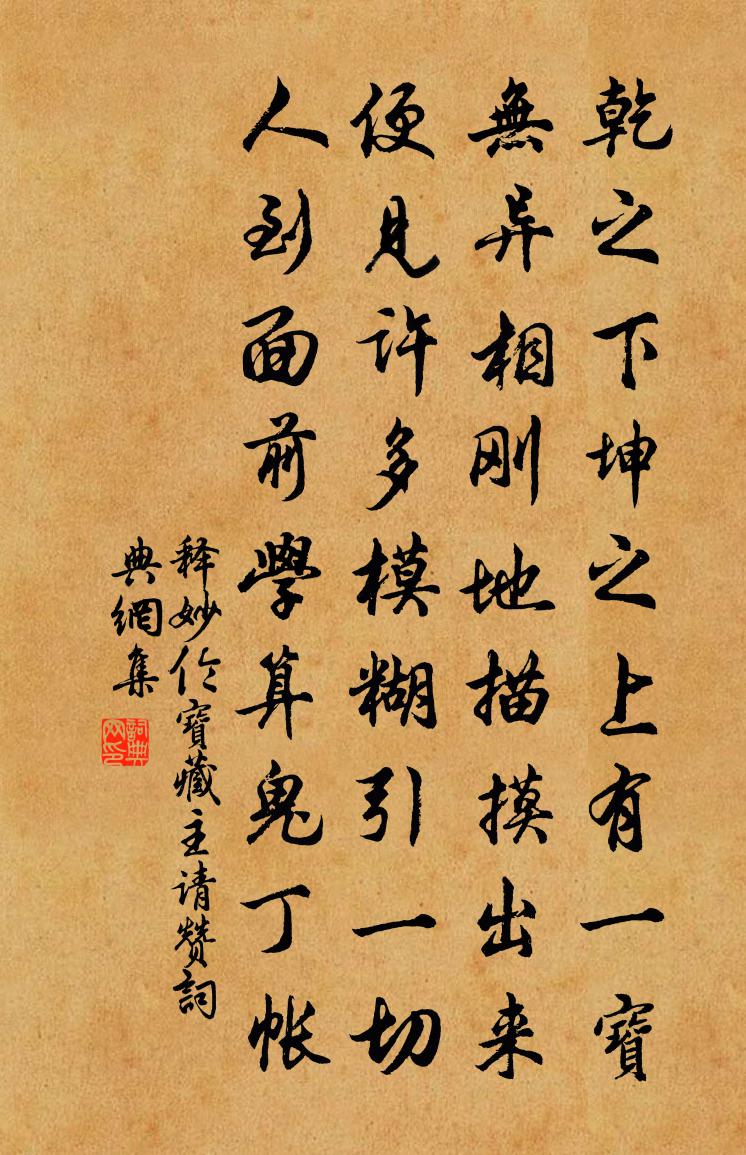 乾之下坤之上有一寶
無异相刚地描摸出来
便見许多模糊引一切
人到面前學算鬼丁帐
释妙伦寶藏主请赞詞
典網集
詞典网印